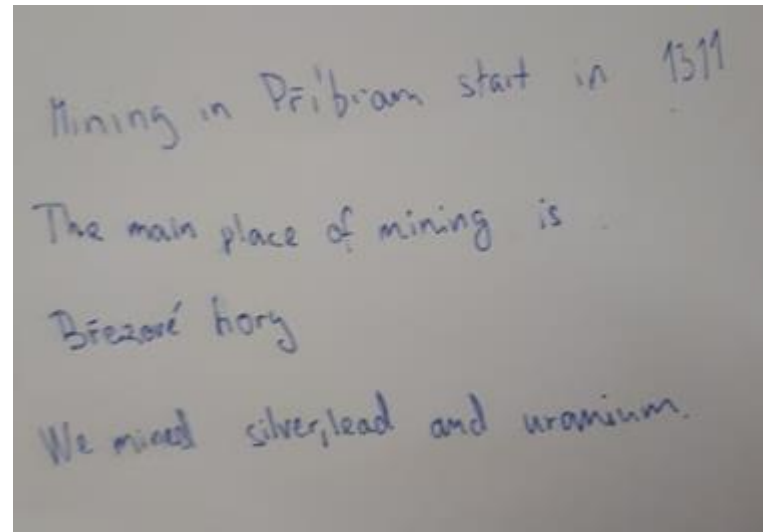 Mining in Příbram start in 1311
The main place of mining is
Březové hory
We mined silver, lead and uranium.